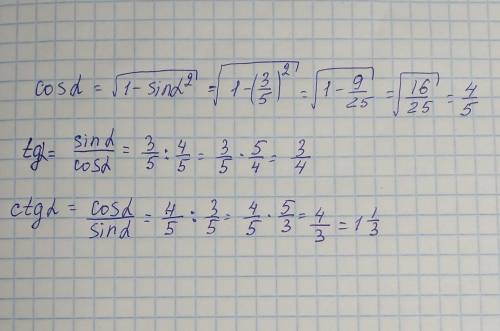 cosα = √(1-sinα²) = √(1-(3/5)²) = √(1-9/25) = √(16/25) = 4/5
tgα = sinα/cosα = 3/5 : 4/5 = 3/5 · 5/4 = 3/4
ctgα = cosα/sinα = 4/5 : 3/5 = 4/5 · 5/3 = 4/3 = 1 1/3